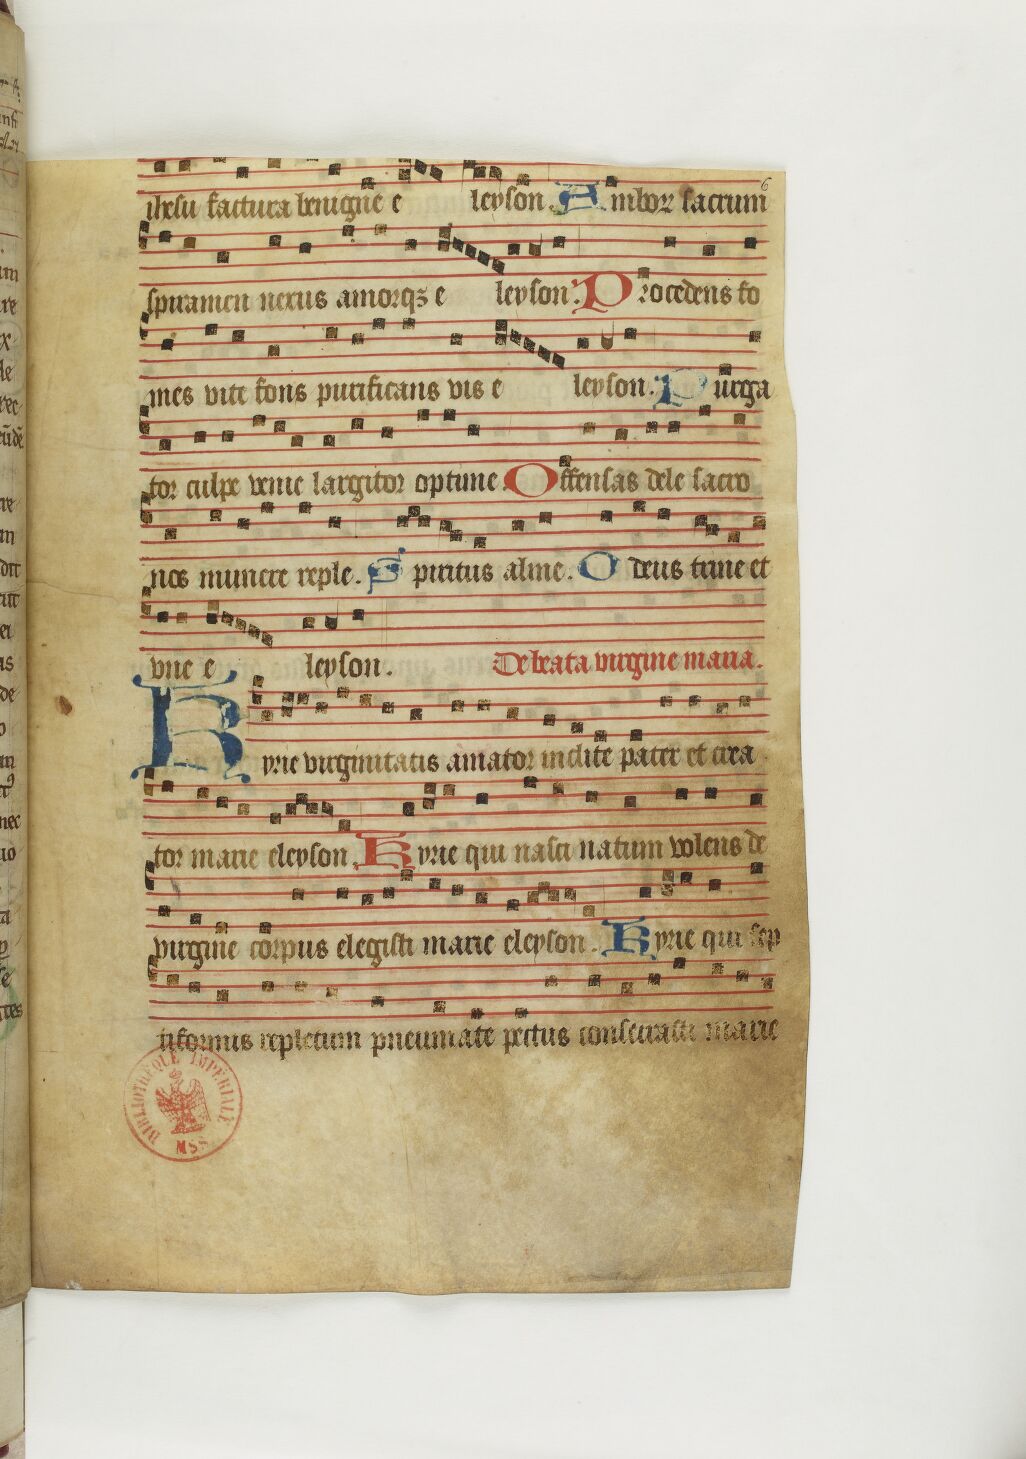 6
ihesu factura benigne e leyson. Amborum sacrum
spiramen nexus amorqz e leyson. Procedens fo
mes vite fons purificans vis e leyson. Purga
tor culpe venie largitor optime. Offensas dele sacro
nos munere reple. Spiritus alme. O deus trine et
vne e leyson. De beata virgine maria.
Kyrie virginitatis amator inclite pater et crea
tor marie eleyson. Kyrie qui nasci natum volens de
virgine corpus elegisti marie eleyson. Kyrie qui sep
tiformis repletum pneumate pectus consecrasti marie
BIBLIOTHÈQUE IMPÉRIALE
MSS.